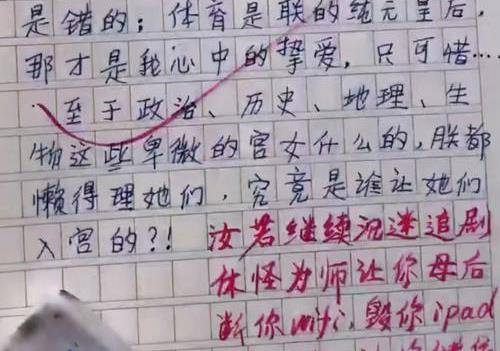 是错的；体育是朕的纯元皇后，
那才是我心中的挚爱，只可惜…
至于政治、历史、地理、生
物这些卑微的宫女什么的，朕都
懒得理她们，究竟是谁让她们
入宫的？！ 汝若继续沉迷追剧
休怪为师让你母后
断你wifi，毁你ipad